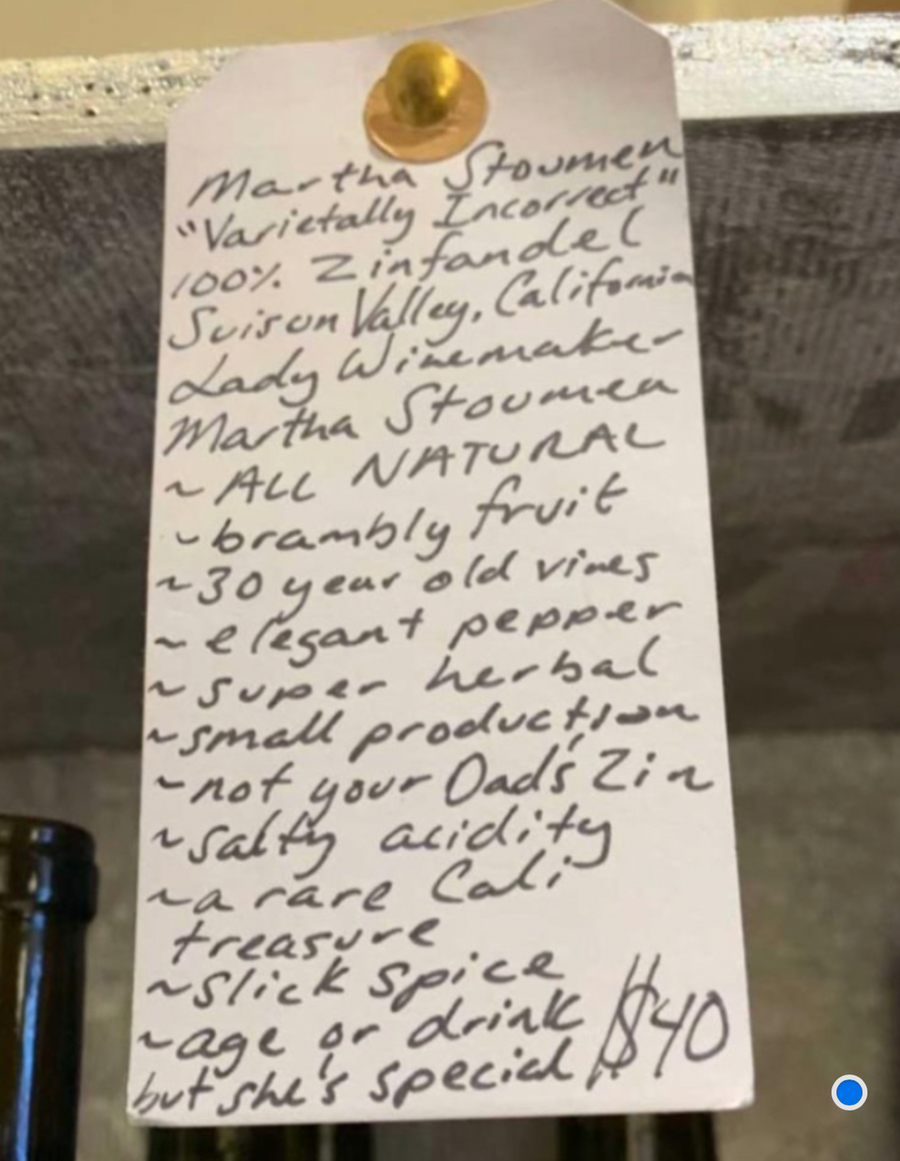 Martha Stoumen
"Varietally Incorrect"
100% Zinfandel
Suisun Valley, California
Lady Winemaker
Martha Stoumen
~ ALL NATURAL
~ brambly fruit
~ 30 year old vines
~ elegant pepper
~ super herbal
~ small production
~ not your Dad's Zin
~ salty acidity
~ a rare Cali
treasure
~ slick spice
~ age or drink
but she's special $40